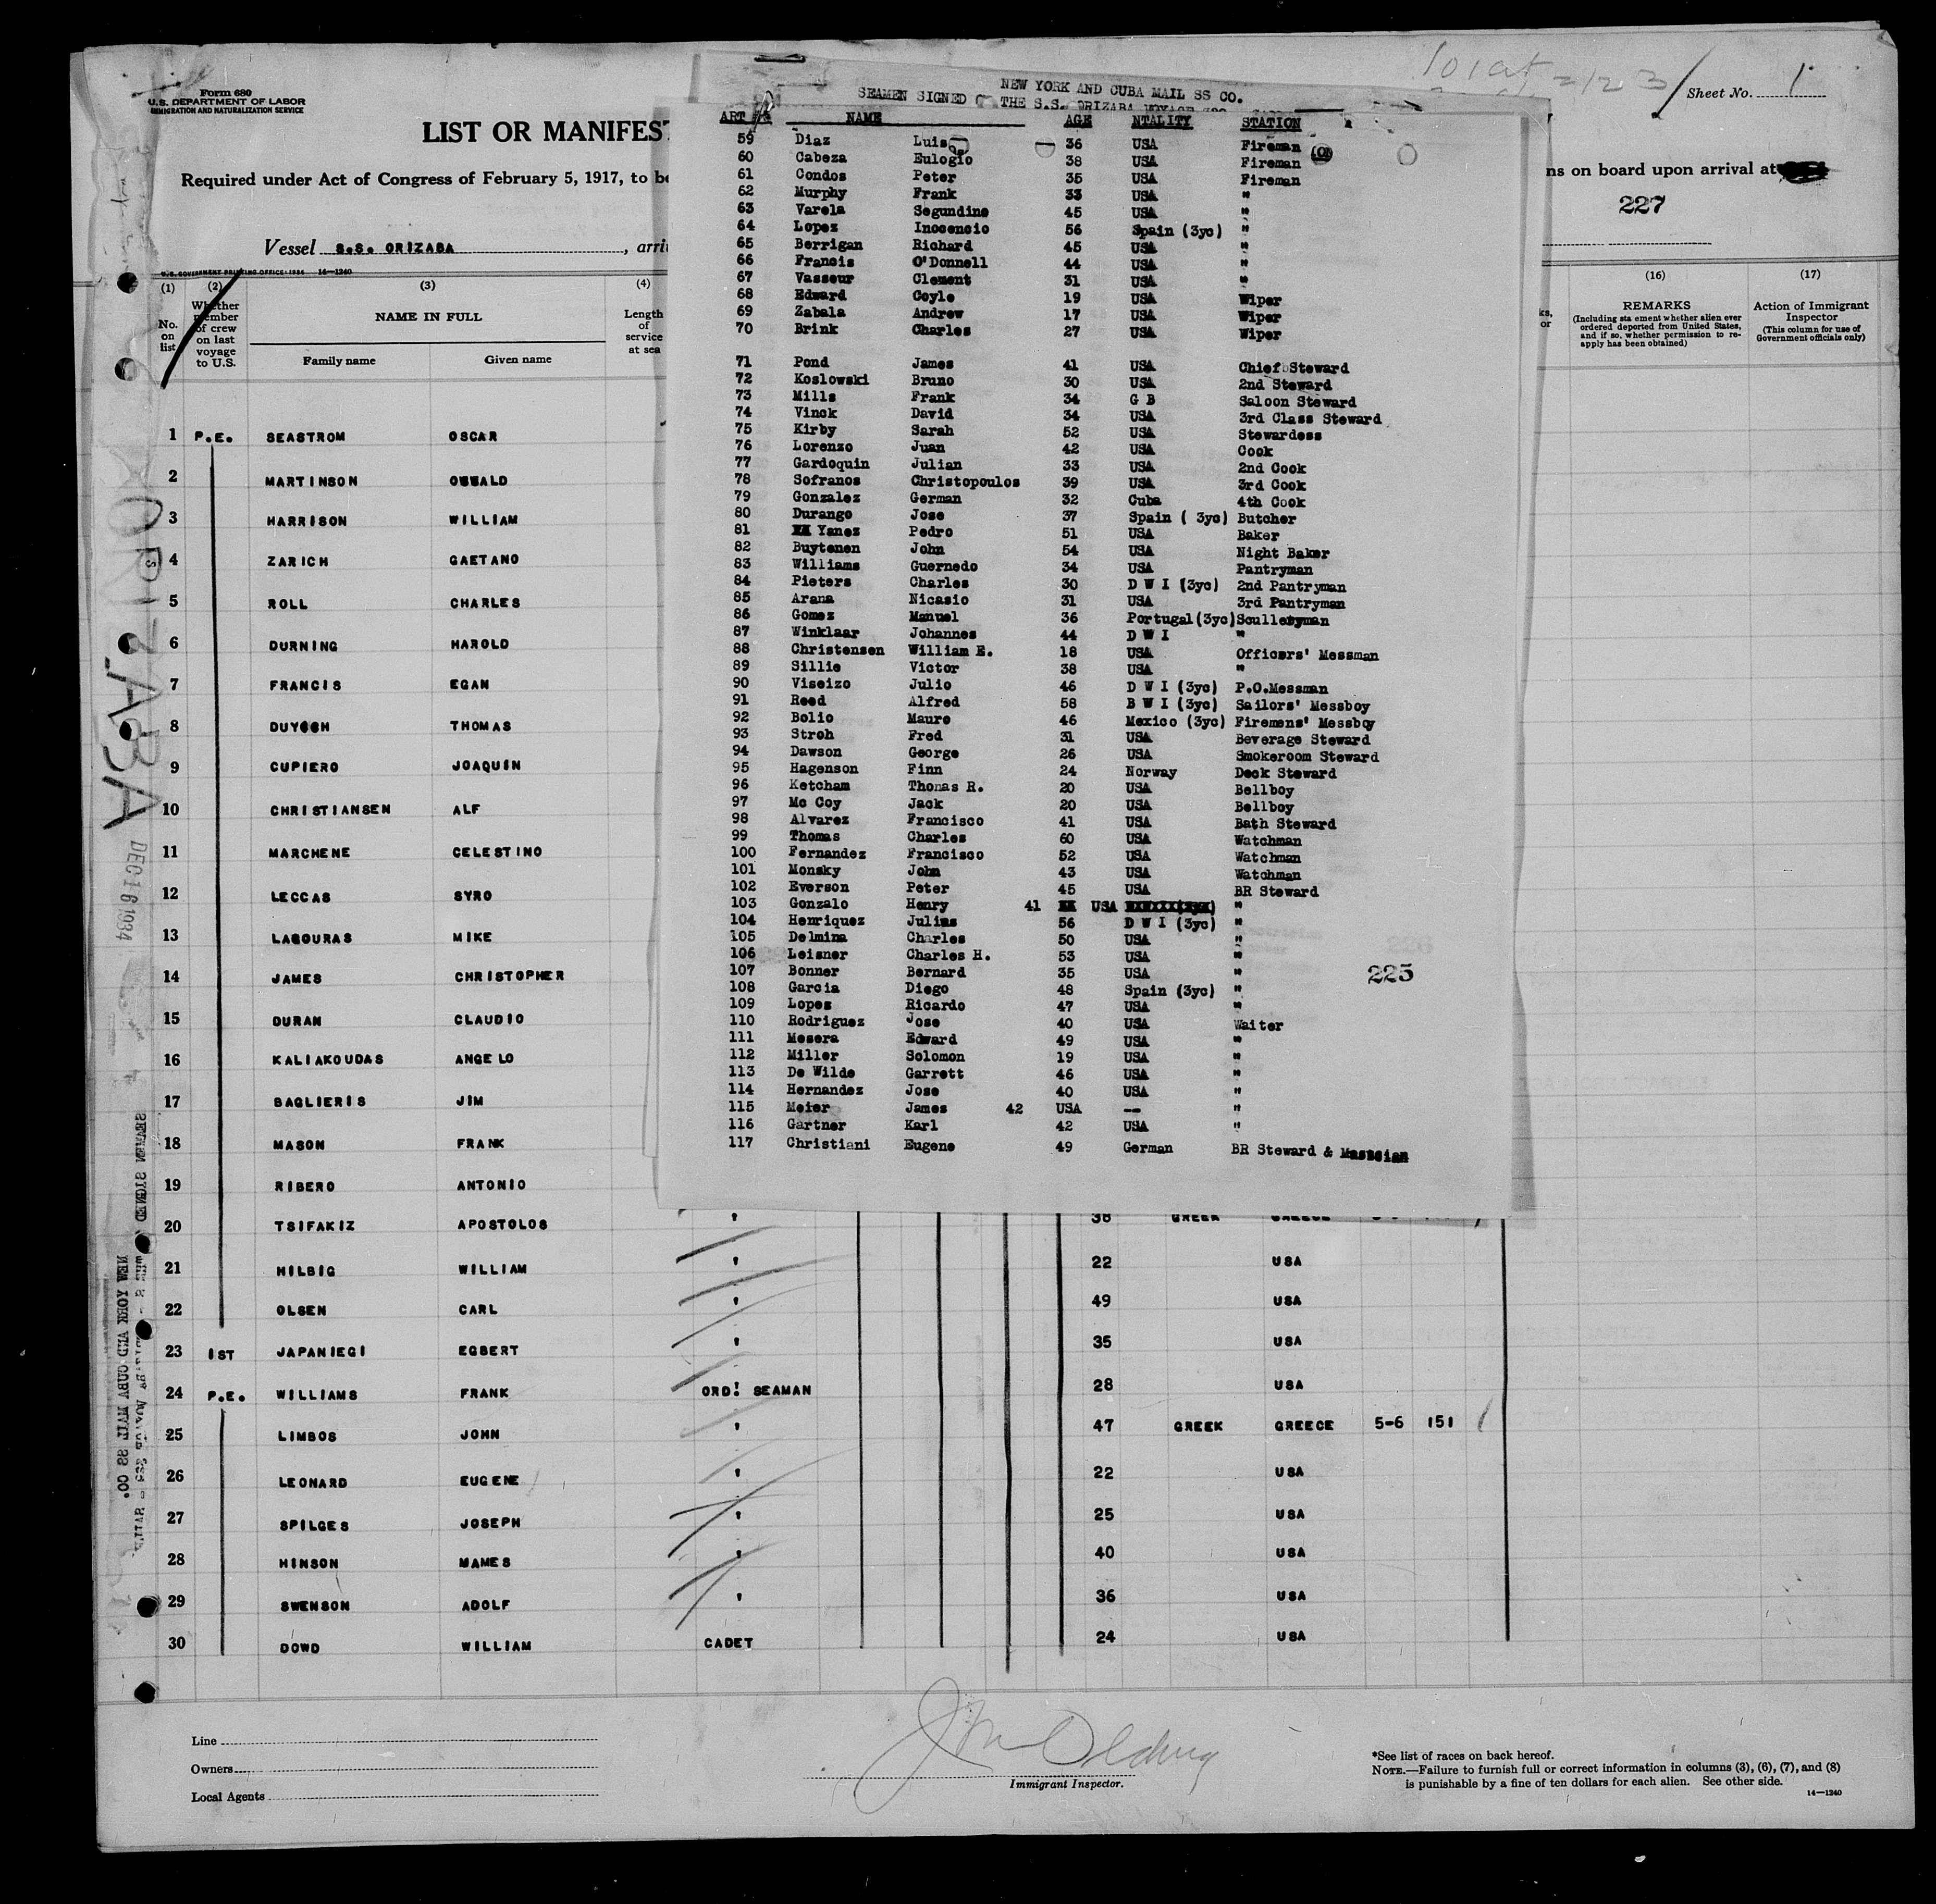 Form 680
U.S. DEPARTMENT OF LABOR
IMMIGRATION AND NATURALIZATION SERVICE
LIST OR MANIFEST
Required under Act of Congress of February 5, 1917, to be
ns on board upon arrival at
Sheet No. 1
227
Vessel S.S. ORIZABA, arri
U.S. GOVERNMENT PRINTING OFFICE: 1934 14—1240
(1) (2) (3) (4) (16) (17)
No. on list
Whether member of crew on last voyage to U.S.
NAME IN FULL
Family name Given name
Length of service at sea
ks, or
REMARKS
(Including sta ement whether alien ever ordered deported from United States, and if so, whether permission to re-apply has been obtained)
Action of Immigrant Inspector
(This column for use of Government officials only)
NEW YORK AND CUBA MAIL SS CO.
SEAMEN SIGNED THE S.S. ORIZABA VOYAGE
ART NAME AGE NTALITY STATION
59 Diaz Luis 36 USA Fireman
60 Cabeza Eulogio 38 USA Fireman
61 Condos Peter 35 USA Fireman
62 Murphy Frank 33 USA "
63 Varela Segundine 45 USA "
64 Lopez Inocencio 56 Spain (3yc) "
65 Berrigan Richard 45 USA "
66 Francis O'Donnell 44 USA "
67 Vasseur Clement 31 USA "
68 Edward Coyle 19 USA Wiper
69 Zabala Andrew 17 USA Wiper
70 Brink Charles 27 USA Wiper
71 Pond James 41 USA Chief Steward
72 Koslowski Bruno 30 USA 2nd Steward
73 Mills Frank 34 G B Saloon Steward
74 Vinck David 34 USA 3rd Class Steward
75 Kirby Sarah 52 USA Stewardess
76 Lorenzo Juan 42 USA Cook
77 Gardoquin Julian 33 USA 2nd Cook
78 Sofranos Christopoulos 39 USA 3rd Cook
79 Gonzalez German 32 Cuba 4th Cook
80 Durango Jose 37 Spain ( 3yc) Butcher
81 Yanez Pedro 51 USA Baker
82 Buytenen John 54 USA Night Baker
83 Williams Guernedo 34 USA Pantryman
84 Pieters Charles 30 D W I (3yc) 2nd Pantryman
85 Arana Nicasio 31 USA 3rd Pantryman
86 Gomez Manuel 36 Portugal(3yc) Sculleryman
87 Winklaar Johannes 44 D W I "
88 Christensen William E. 18 USA Officers' Messman
89 Sillie Victor 38 USA "
90 Viseizo Julio 46 D W I (3yc) P.O.Messman
91 Reed Alfred 58 B W I (3yc) Sailors' Messboy
92 Bolio Mauro 46 Mexico (3yc) Firemens' Messboy
93 Stroh Fred 31 USA Beverage Steward
94 Dawson George 26 USA Smokeroom Steward
95 Hagenson Finn 24 Norway Deck Steward
96 Ketcham Thomas R. 20 USA Bellboy
97 Mc Coy Jack 20 USA Bellboy
98 Alvarez Francisco 41 USA Bath Steward
99 Thomas Charles 60 USA Watchman
100 Fernandez Francisco 52 USA Watchman
101 Monsky John 43 USA Watchman
102 Everson Peter 45 USA BR Steward
103 Gonzalo Henry 41 USA "
104 Henriquez Julius 56 D W I (3yc) "
105 Delmina Charles 50 USA "
106 Leisner Charles H. 53 USA "
107 Bonner Bernard 35 USA "
108 Garcia Diego 48 Spain (3yc) "
109 Lopez Ricardo 47 USA "
110 Rodriguez Jose 40 USA Waiter
111 Mesera Edward 49 USA "
112 Miller Solomon 19 USA "
113 De Wilde Garrett 46 USA "
114 Hernandez Jose 40 USA "
115 Meier James 42 USA -- "
116 Gartner Karl 42 USA "
117 Christiani Eugene 49 German BR Steward &
225
1 P.E. SEASTROM OSCAR
2 MARTINSON OSWALD
3 HARRISON WILLIAM
4 ZARICH GAETANO
5 ROLL CHARLES
6 DURNING HAROLD
7 FRANCIS EGAN
8 THOMAS
9 CUPIERO JOAQUIN
10 CHRISTIANSEN ALF
11 MARCHENE CELESTINO
12 LECCAS SYRO
13 LAGOURAS MIKE
14 JAMES CHRISTOPHER
15 DURAN CLAUDIO
16 KALIAKOUDAS ANGELO
17 BAGLIERIS JIM
18 MASON FRANK
19 RIBERO ANTONIO
20 TSIFAKIZ APOSTOLOS ' 38 GREEK GREECE
21 HILBIG WILLIAM ' 22 USA
22 OLSEN CARL ' 49 USA
23 1ST JAPANIEGI EGBERT ' 35 USA
24 P.E. WILLIAMS FRANK ORD. SEAMAN 28 USA
25 LIMBOS JOHN ' 47 GREEK GREECE 5-6 151
26 LEONARD EUGENE ' 22 USA
27 SPILGES JOSEPH ' 25 USA
28 HINSON MAMES ' 40 USA
29 SWENSON ADOLF ' 36 USA
30 DOWD WILLIAM CADET 24 USA
ORIZABA
DEC 16 1934
SEAMEN SIGNED
NEW YORK AND CUBA MAIL SS CO.
Line
Owners
Local Agents
Immigrant Inspector.
*See list of races on back hereof.
NOTE.—Failure to furnish full or correct information in columns (3), (6), (7), and (8)
is punishable by a fine of ten dollars for each alien. See other side.
14—1240